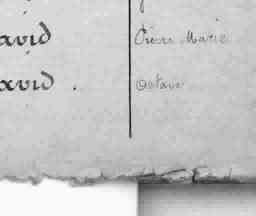 avid Pierre Marie
avid . Octave